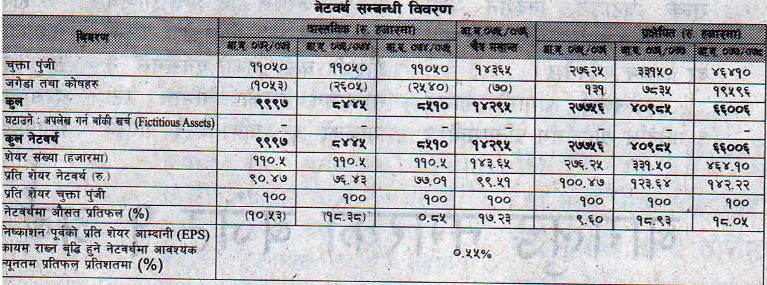 नेटवर्थ सम्बन्धी विवरण
विवरण वास्तविक (रु. हजारमा) आ.व. ०७५/०७६ प्रक्षेपित (रु. हजारमा)
आ.व. ०७२/०७३ आ.व. ०७३/०७४ आ.व. ०७४/०७५ चैत्र मसान्त आ.व. ०७५/०७६ आ.व. ०७६/०७७ आ.व. ०७७/०७८
चुक्ता पुंजी ११०५० ११०५० ११०५० १४३६५ २७६२५ ३३१५० ४६४१०
जगेडा तथा कोषहरु (१०५३) (२६०५) (२५४०) (७०) १३१ ७८३५ १९५९६
कुल ९९९७ ८४४५ ८५१० १४२९५ २७७५६ ४०९८५ ६६००६
घटाउने : अपलेखन गर्न बाँकी खर्च (Fictitious Assets) – – – – – – –
कुल नेटवर्थ ९९९७ ८४४५ ८५१० १४२९५ २७७५६ ४०९८५ ६६००६
शेयर संख्या (हजारमा) ११०.५ ११०.५ ११०.५ १४३.६५ २७६.२५ ३३१.५० ४६४.१०
प्रति शेयर नेटवर्थ (रु.) ९०.४७ ७६.४३ ७७.०१ ९९.५१ १००.४७ १२३.६४ १४२.२२
प्रति शेयर चुक्ता पुंजी १०० १०० १०० १०० १०० १०० १००
नेटवर्थमा औसत प्रतिफल (%) (१०.५३) (१८.३८) ०.८५ १७.२३ ९.६० १८.९३ १८.०५
निष्काशन पूर्वको प्रति शेयर आम्दानी (EPS)
कायम राख्न बृद्धि हुने नेटवर्थमा आवश्यक ०.५५%
न्यूनतम प्रतिफल प्रतिशतमा (%)